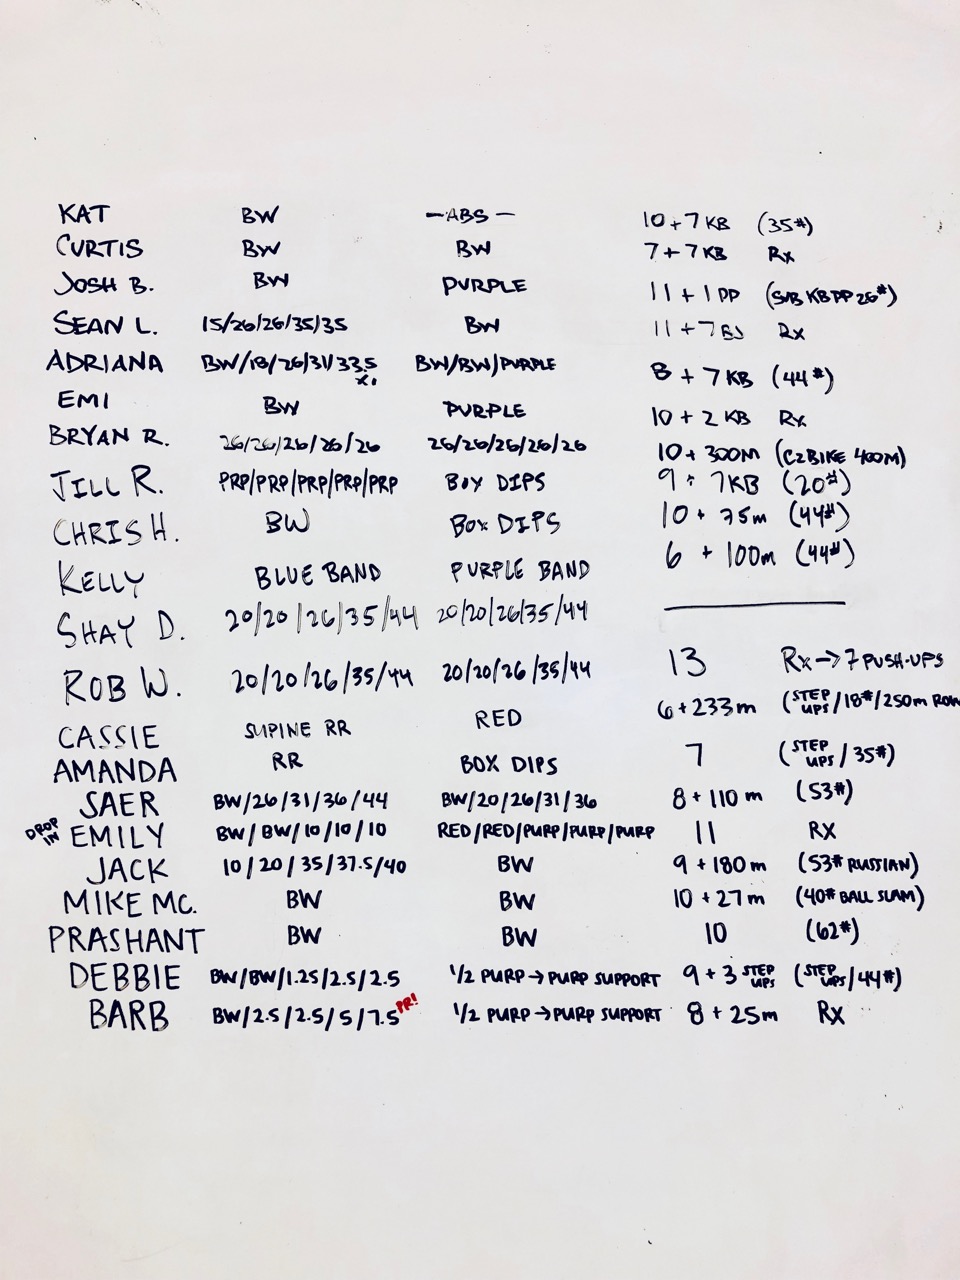 KAT BW —ABS— 10 + 7 KB (35#)
CURTIS BW BW 7 + 7 KB Rx
JOSH B. BW PURPLE 11 + 1 PP (SUB KB PP 26#)
SEAN L. 15/26/26/35/35 BW 11 + 7 BJ Rx
ADRIANA BW/18/26/31/33.5 x1 BW/BW/PURPLE 8 + 7 KB (44#)
EMI BW PURPLE 10 + 2 KB Rx
BRYAN R. 26/26/26/26/26 26/26/26/26/26 10 + 300M (C2BIKE 400M)
JILL R. PRP/PRP/PRP/PRP/PRP BOX DIPS 9 + 7KB (20#)
CHRIS H. BW BOX DIPS 10 + 75m (44#)
KELLY BLUE BAND PURPLE BAND 6 + 100m (44#)
SHAY D. 20/20/26/35/44 20/20/26/35/44 —
ROB W. 20/20/26/35/44 20/20/26/35/44 13 Rx → 7 PUSH-UPS
CASSIE SUPINE RR RED 6 + 233m (STEP UPS/18#/250m ROW
AMANDA RR BOX DIPS 7 (STEP UPS/35#)
SAER BW/26/31/36/44 BW/20/26/31/36 8 + 110 m (53#)
DROP IN EMILY BW/BW/10/10/10 RED/RED/PURP/PURP/PURP 11 RX
JACK 10/20/35/37.5/40 BW 9 + 180 m (53# RUSSIAN)
MIKE MC. BW BW 10 + 27 m (40# BALL SLAM)
PRASHANT BW BW 10 (62#)
DEBBIE BW/BW/1.25/2.5/2.5 1/2 PURP → PURP SUPPORT 9 + 3 STEP UPS (STEP UPS/44#)
BARB BW/2.5/2.5/5/7.5 PR! 1/2 PURP → PURP SUPPORT 8 + 25m Rx